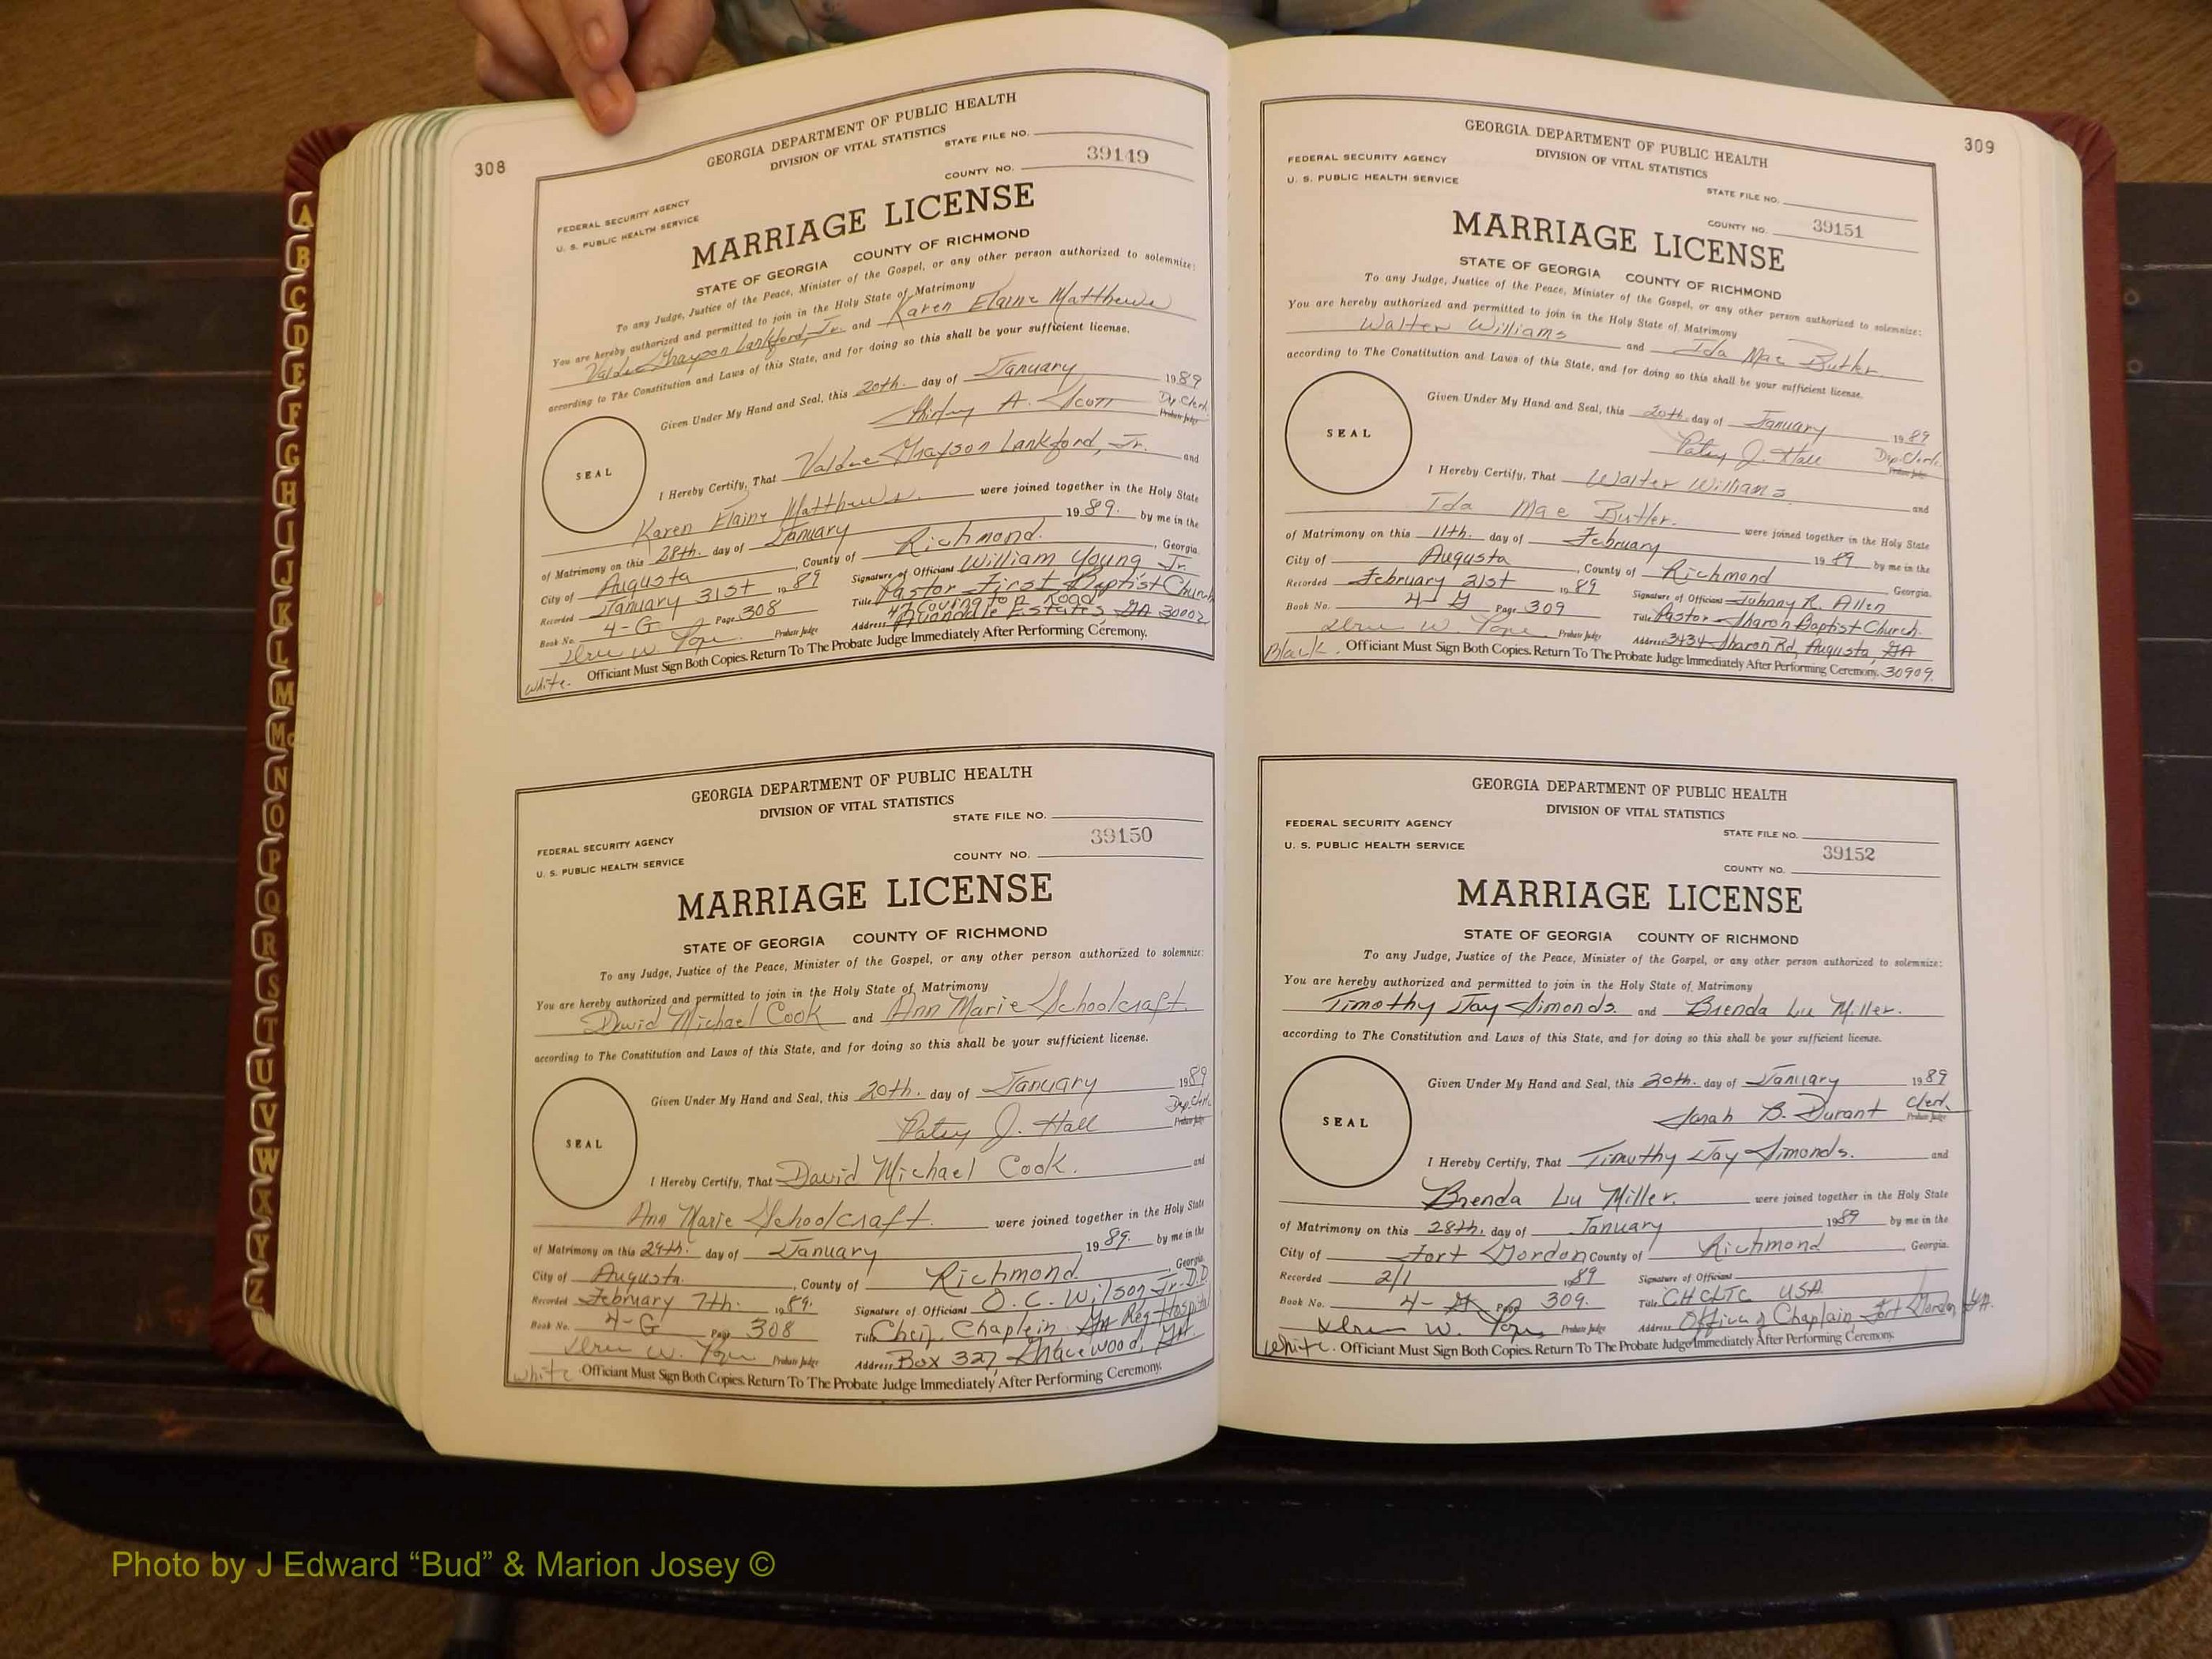 308
GEORGIA DEPARTMENT OF PUBLIC HEALTH
DIVISION OF VITAL STATISTICS
STATE FILE NO.
39149
COUNTY NO.
FEDERAL SECURITY AGENCY
U. S. PUBLIC HEALTH SERVICE
MARRIAGE LICENSE
STATE OF GEORGIA COUNTY OF RICHMOND
To any Judge, Justice of the Peace, Minister of the Gospel, or any other person authorized to solemnize:
You are hereby authorized and permitted to join in the Holy State of Matrimony
Grayson Lankford, Jr. and Karen Elaine Matthews
according to The Constitution and Laws of this State, and for doing so this shall be your sufficient license.
Given Under My Hand and Seal, this 20th. day of January 1989
Shirley A. Scott Dp. Clerk
Probate Judge
SEAL
I Hereby Certify, That Grayson Lankford, Jr. and
Karen Elaine Matthews. were joined together in the Holy State
of Matrimony on this 28th. day of January 1989. by me in the
City of Augusta, County of Richmond. Georgia.
Recorded January 31st 1989 Signature of Officiant William Young Jr.
Book No. 4-G Page 308 Title Pastor First Baptist Church
Covington Road
Probate Judge Address Avondale Estates GA 30002
white. Officiant Must Sign Both Copies. Return To The Probate Judge Immediately After Performing Ceremony.
GEORGIA DEPARTMENT OF PUBLIC HEALTH
DIVISION OF VITAL STATISTICS
STATE FILE NO.
39150
FEDERAL SECURITY AGENCY
COUNTY NO.
U. S. PUBLIC HEALTH SERVICE
MARRIAGE LICENSE
STATE OF GEORGIA COUNTY OF RICHMOND
To any Judge, Justice of the Peace, Minister of the Gospel, or any other person authorized to solemnize:
You are hereby authorized and permitted to join in the Holy State of Matrimony
David Michael Cook and Ann Marie Schoolcraft.
according to The Constitution and Laws of this State, and for doing so this shall be your sufficient license.
Given Under My Hand and Seal, this 20th. day of January 1989
Patsy J. Hall Dep. Clerk
Probate Judge
SEAL
I Hereby Certify, That David Michael Cook. and
Ann Marie Schoolcraft. were joined together in the Holy State
of Matrimony on this 29th. day of January 1989. by me in the
City of Augusta. County of Richmond. Georgia.
Recorded February 7th. 1989. Signature of Officiant O. C. Wilson, Jr. D.D.
Book No. 4-G Page 308 Title Chief Chaplain Ga Reg. Hospital
Probate Judge Address Box 327, Gracewood, GA.
white Officiant Must Sign Both Copies. Return To The Probate Judge Immediately After Performing Ceremony.
309
GEORGIA DEPARTMENT OF PUBLIC HEALTH
DIVISION OF VITAL STATISTICS
FEDERAL SECURITY AGENCY
U. S. PUBLIC HEALTH SERVICE
STATE FILE NO.
COUNTY NO. 39151
MARRIAGE LICENSE
STATE OF GEORGIA COUNTY OF RICHMOND
To any Judge, Justice of the Peace, Minister of the Gospel, or any other person authorized to solemnize:
You are hereby authorized and permitted to join in the Holy State of Matrimony
Walter Williams and Ida Mae Butler.
according to The Constitution and Laws of this State, and for doing so this shall be your sufficient license.
Given Under My Hand and Seal, this 20th. day of January 1989
Patsy J. Hall Dep. Clerk.
Probate Judge
SEAL
I Hereby Certify, That Walter Williams. and
Ida Mae Butler. were joined together in the Holy State
of Matrimony on this 11th. day of February 1989 by me in the
City of Augusta, County of Richmond Georgia.
Recorded February 21st 1989 Signature of Officiant Johnny R. Allen
Book No. 4-G Page 309 Title Pastor Sharon Baptist Church.
Probate Judge Address 3434 Sharon Rd, Augusta, GA
Black. Officiant Must Sign Both Copies. Return To The Probate Judge Immediately After Performing Ceremony. 30909.
GEORGIA DEPARTMENT OF PUBLIC HEALTH
DIVISION OF VITAL STATISTICS
FEDERAL SECURITY AGENCY
STATE FILE NO.
U. S. PUBLIC HEALTH SERVICE
39152
COUNTY NO.
MARRIAGE LICENSE
STATE OF GEORGIA COUNTY OF RICHMOND
To any Judge, Justice of the Peace, Minister of the Gospel, or any other person authorized to solemnize:
You are hereby authorized and permitted to join in the Holy State of Matrimony
Timothy Jay Simonds. and Brenda Lu Miller.
according to The Constitution and Laws of this State, and for doing so this shall be your sufficient license.
Given Under My Hand and Seal, this 20th. day of January 1989
Sarah B. Durant Clerk
Probate Judge
SEAL
I Hereby Certify, That Timothy Jay Simonds. and
Brenda Lu Miller. were joined together in the Holy State
of Matrimony on this 28th. day of January 1989 by me in the
City of Fort Gordon County of Richmond Georgia.
Recorded 2/1 1989 Signature of Officiant
Book No. 4-G Page 309. Title CH CLTC USA
Probate Judge Address Office of Chaplain, Fort Gordon, GA.
White. Officiant Must Sign Both Copies. Return To The Probate Judge Immediately After Performing Ceremony.
A
B
C
D
E
F
G
H
I
J
K
L
M
Mc
N
O
P
Q
R
S
T
U
V
W
X
Y
Z
Photo by J Edward “Bud” & Marion Josey ©